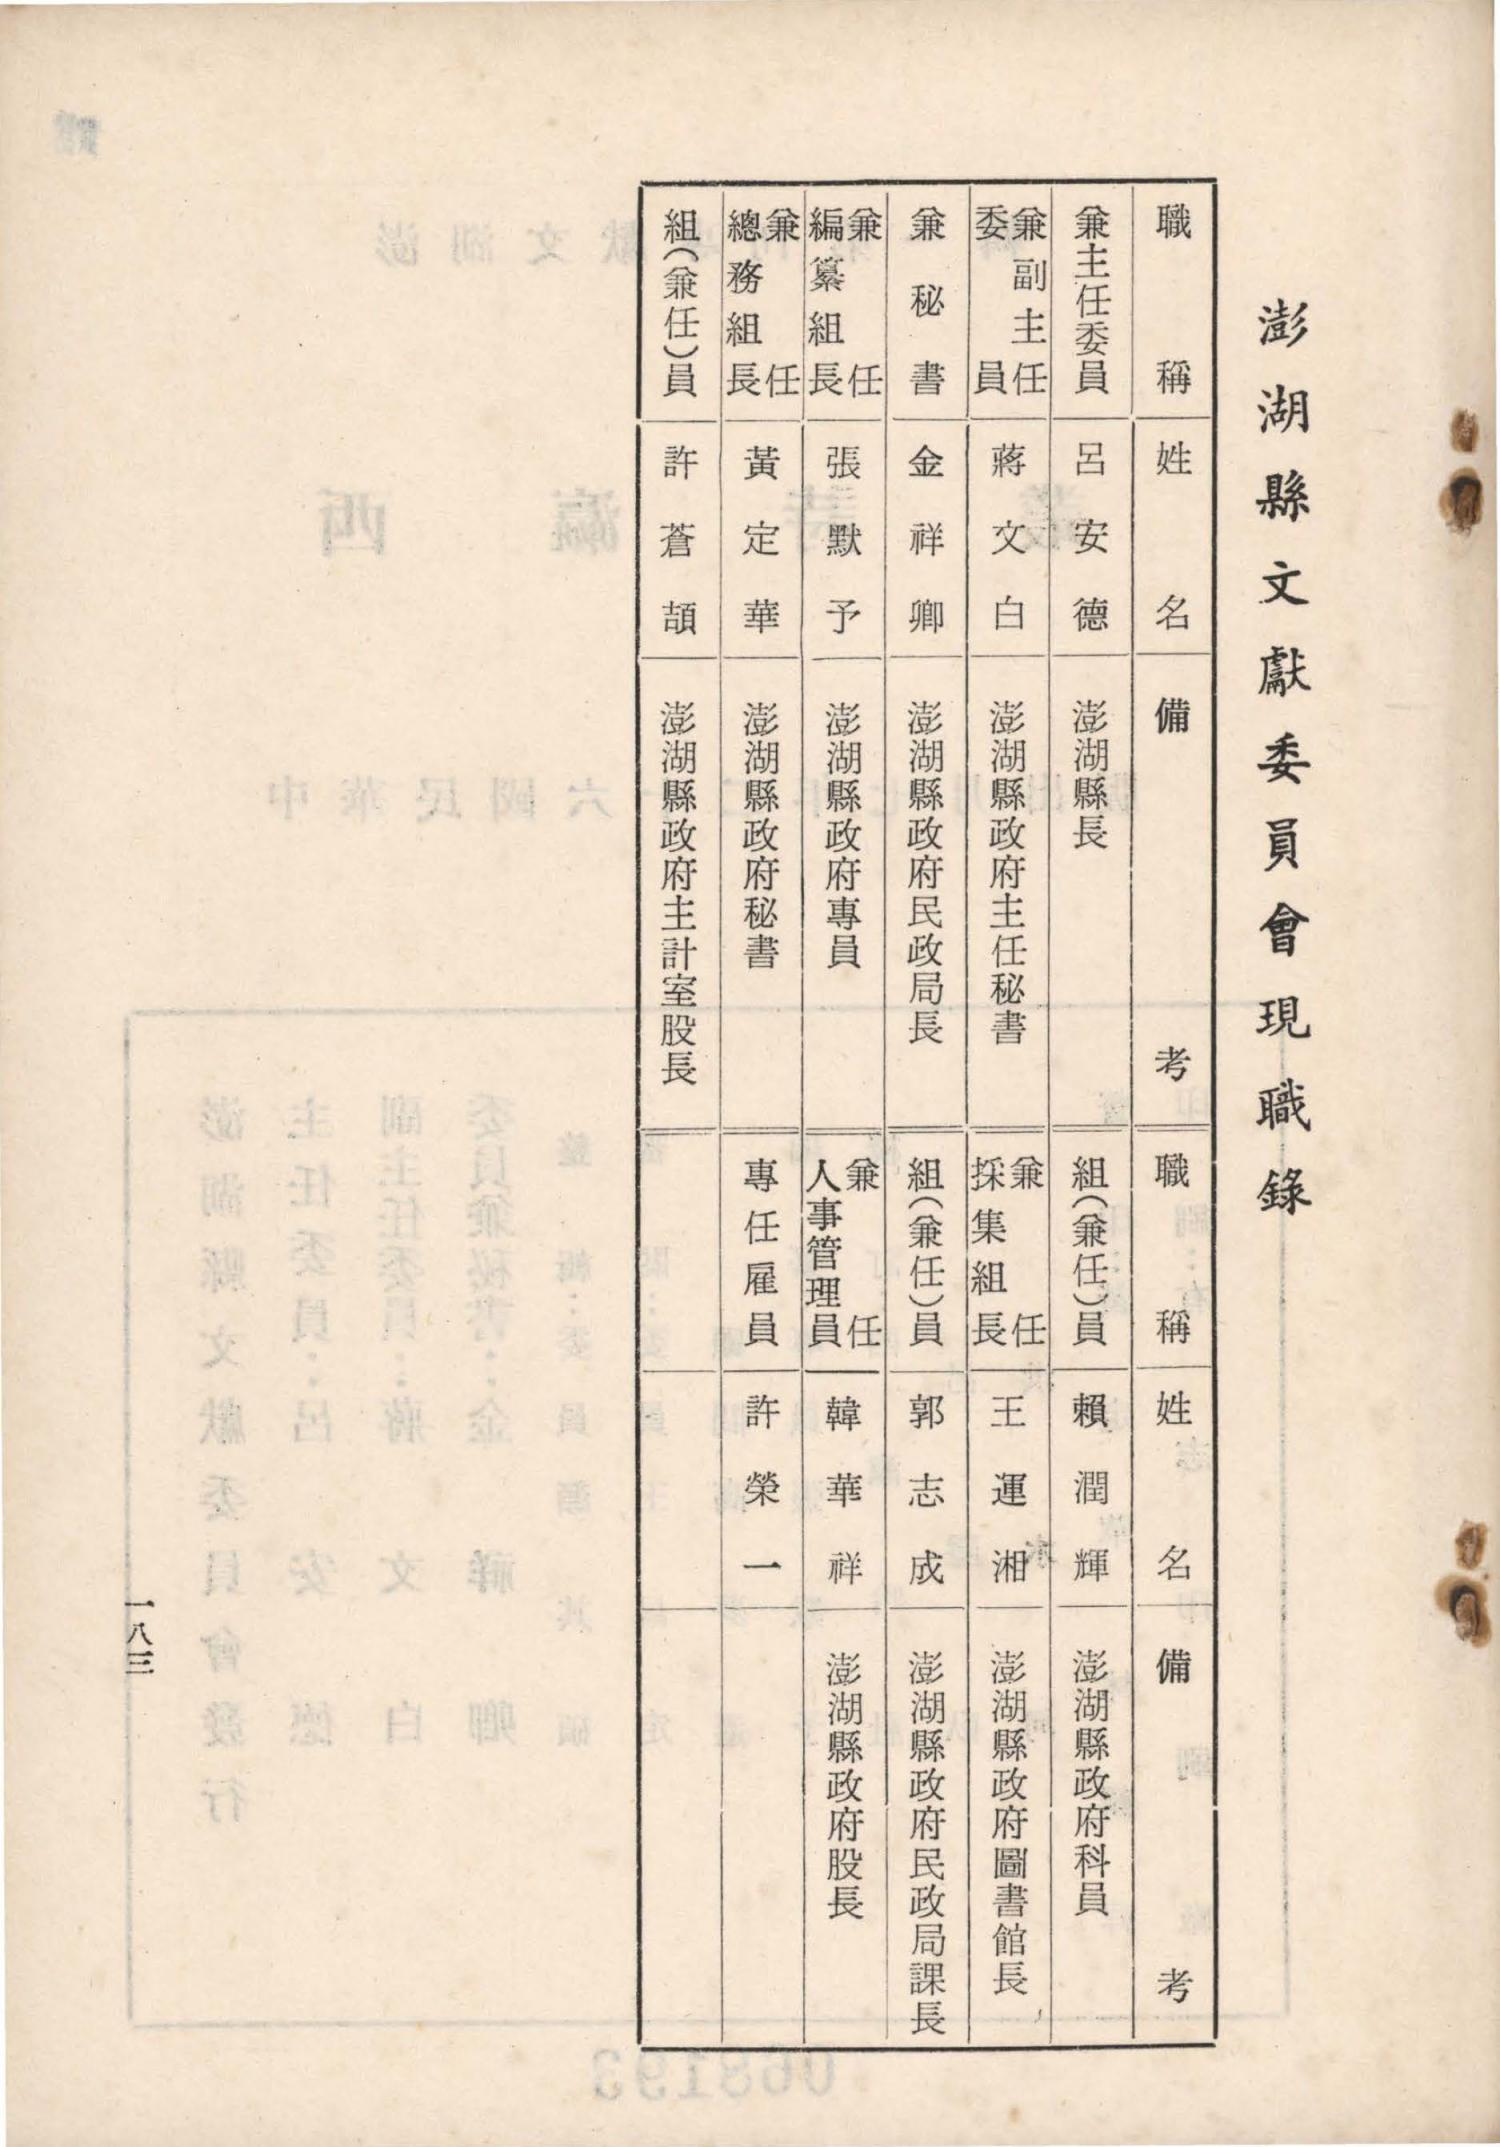 澎湖縣文獻委員會現職錄
職稱 姓名 備考 職稱 姓名 備考
兼主任委員 呂安德 澎湖縣長 組(兼任)員 賴潤輝 澎湖縣政府科員
兼副主任委員 蔣文白 澎湖縣政府主任秘書 兼任採集組長 王運湘 澎湖縣政府圖書館長
兼秘書 金祥卿 澎湖縣政府民政局長 組(兼任)員 郭志成 澎湖縣政府民政局課長
兼任編纂組長 張默予 澎湖縣政府專員 兼任人事管理員 韓華祥 澎湖縣政府股長
兼任總務組長 黃定華 澎湖縣政府秘書 專任雇員 許榮一
組(兼任)員 許蒼頡 澎湖縣政府主計室股長
一八三